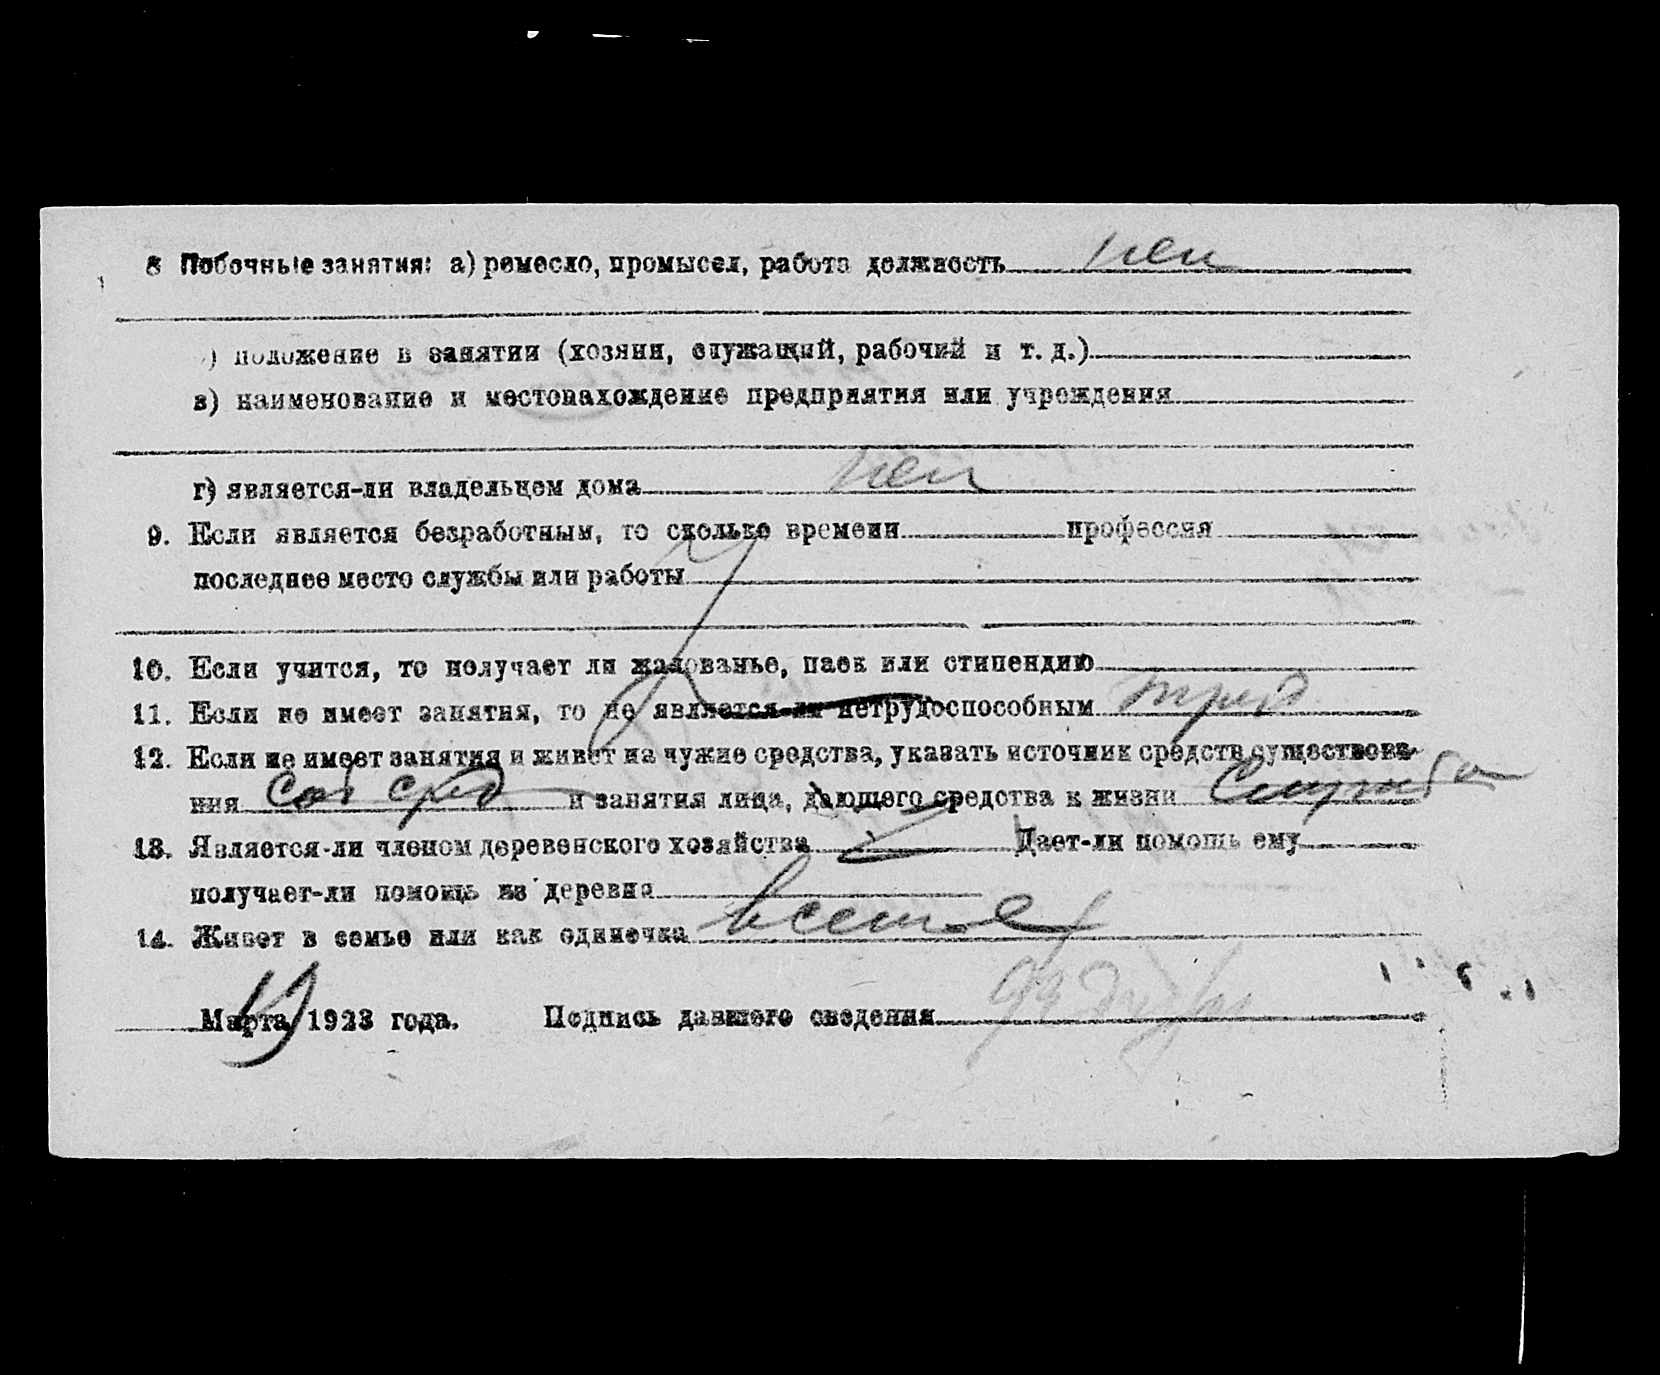 8 Побочные занятия: а) ремесло, промысел, работа должность нет
) положение в занятии (хозяин, служащий, рабочий и т. д.)
в) наименование и местонахождение предприятия или учреждения
г) является-ли владельцем дома нет
9. Если является безработным, то сколько времени профессия
последнее место службы или работы
10. Если учится, то получает ли жалованье, паек или стипендию
11. Если не имеет занятия, то не является-ли нетрудоспособным труд
12. Если не имеет занятия и живет на чужие средства, указать источник средств существова-
ния Соб сред и занятия лица, дающего средства к жизни Служба
13. Является-ли членом деревенского хозяйства Дает-ли помощь ему
получает-ли помощь из деревни
14. Живет в семье или как одиночка в семье
19 Марта 1923 года. Подпись давшего сведения